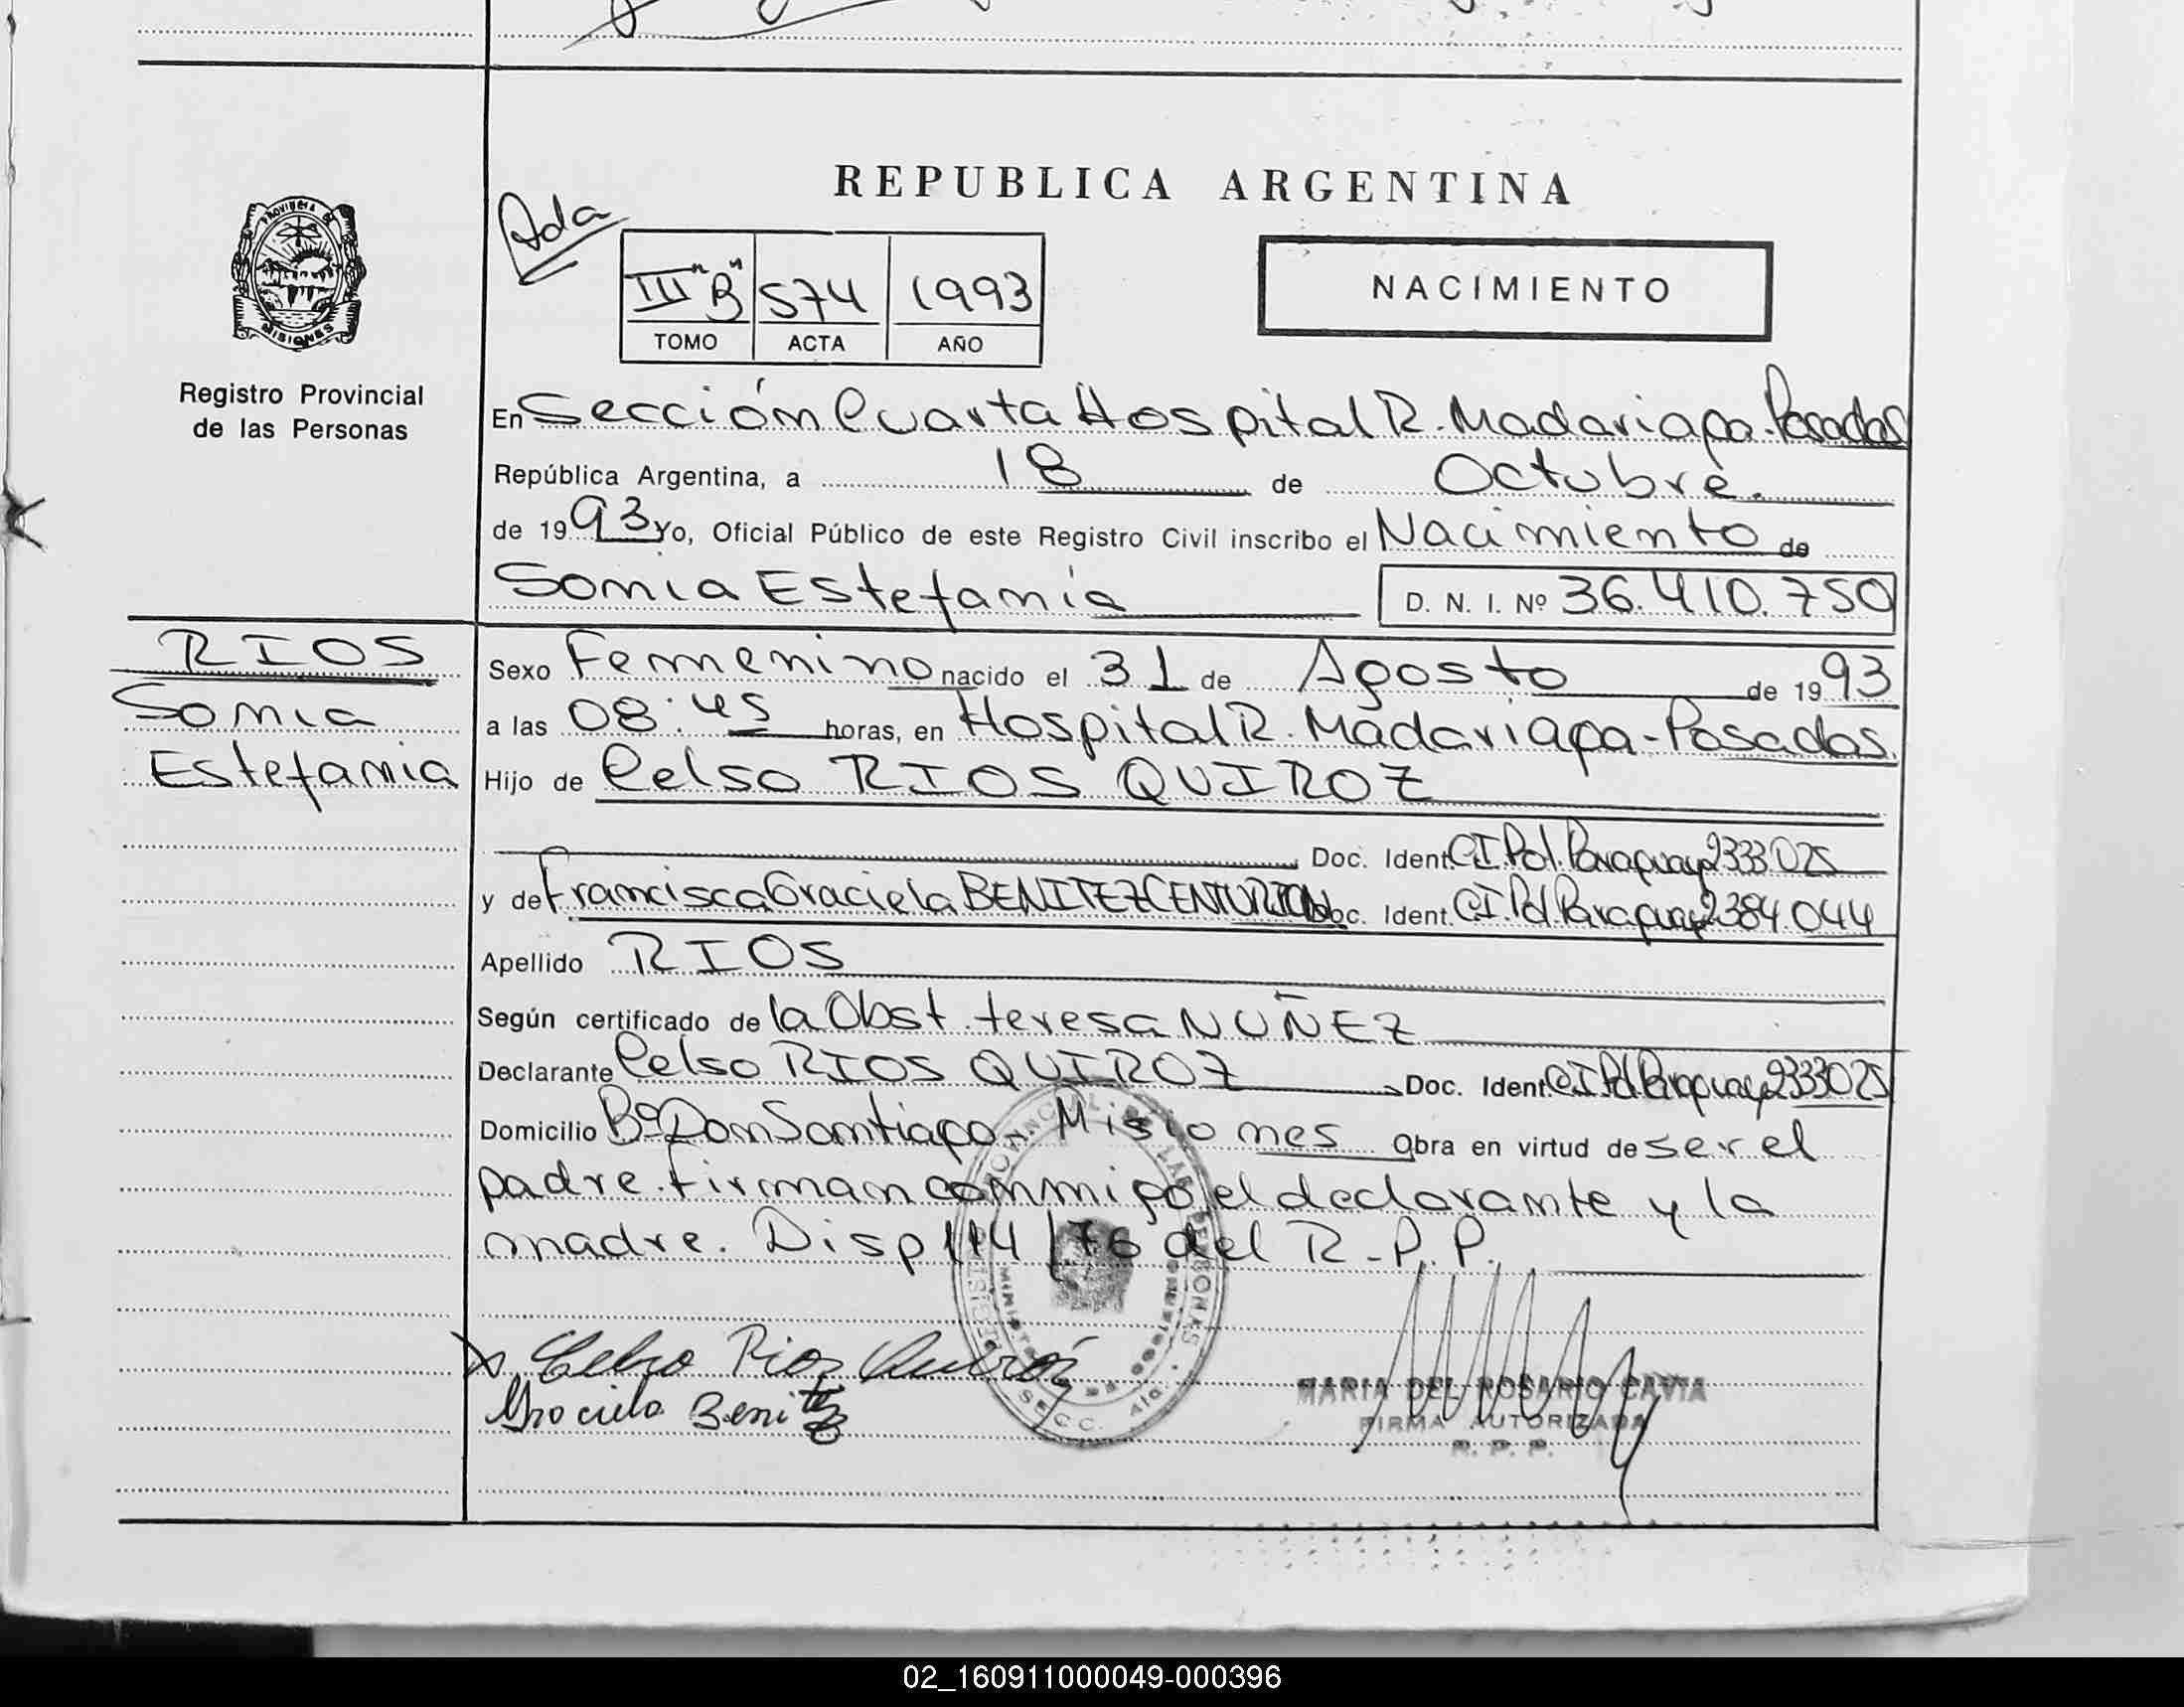 REPUBLICA ARGENTINA
Ada
III "B" 574 1993
TOMO ACTA AÑO
NACIMIENTO
PROVINCIA DE
MISIONES
Registro Provincial
de las Personas
En Sección Cuarta Hospital R. Madariaga. Posadas
República Argentina, a 18 de Octubre.
de 1993 Yo, Oficial Público de este Registro Civil inscribo el Nacimiento de
Sonia Estefania D. N. I. Nº 36.410.750
RIOS
Sonia
Estefania
Sexo Femenino nacido el 31 de Agosto de 1993
a las 08:45 horas, en Hospital R. Madariaga-Posadas.
Hijo de Celso RIOS QUIROZ
Doc. Ident. C.I.Pol.Paraguay 2333.025
y de Francisca Graciela BENITEZ CENTURION Doc. Ident. C.I.Pol.Paraguay 2384.044
Apellido RIOS
Según certificado de la Obst. teresa NUÑEZ
Declarante Celso RIOS QUIROZ Doc. Ident. C.I.Pol.Paraguay 2333025
Domicilio Bº Don Santiago - Misiones Obra en virtud de ser el
padre. firman conmigo el declarante y la
madre. Disp 114/76 del R.P.P.
x Celso Rios Quiroz
Graciela Benitez
MARIA DEL ROSARIO CAVIA
FIRMA AUTORIZADA
R. P. P.
SECC. 4ta.
02_160911000049-000396